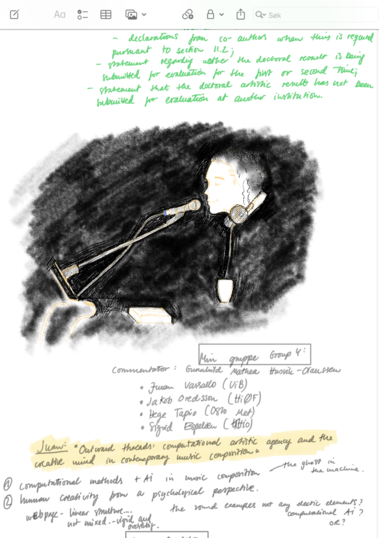 Aa
Søk
- declarations from co-authors when this is required
pursuant to section 11.2;
- statement regarding wether the doctoral result is being
submitted for evaluation for the first or second time;
- statement that the doctoral artistic result has not been
submitted for evaluation at another institution.
Min gruppe Group 4:
Commentator: Gunnhild Mathea Husvik-Olaussen
• Juan Vassallo (UiB)
• Jakob Oredsson (HiØF)
• Hege Tapio (Oslo Met)
• Sigrid Espelien (KHiO)
Juan: "Outward threads: computational artistic agency and the
creative mind in contemporary music composition"
① computational methods + Ai in music composition
the ghost in
the machine.
② human creativity from a psychological perspective.
webpage - linear structure...
not mixed - liquid and
the sound examples not any electric elements?
computational Ai?
or?